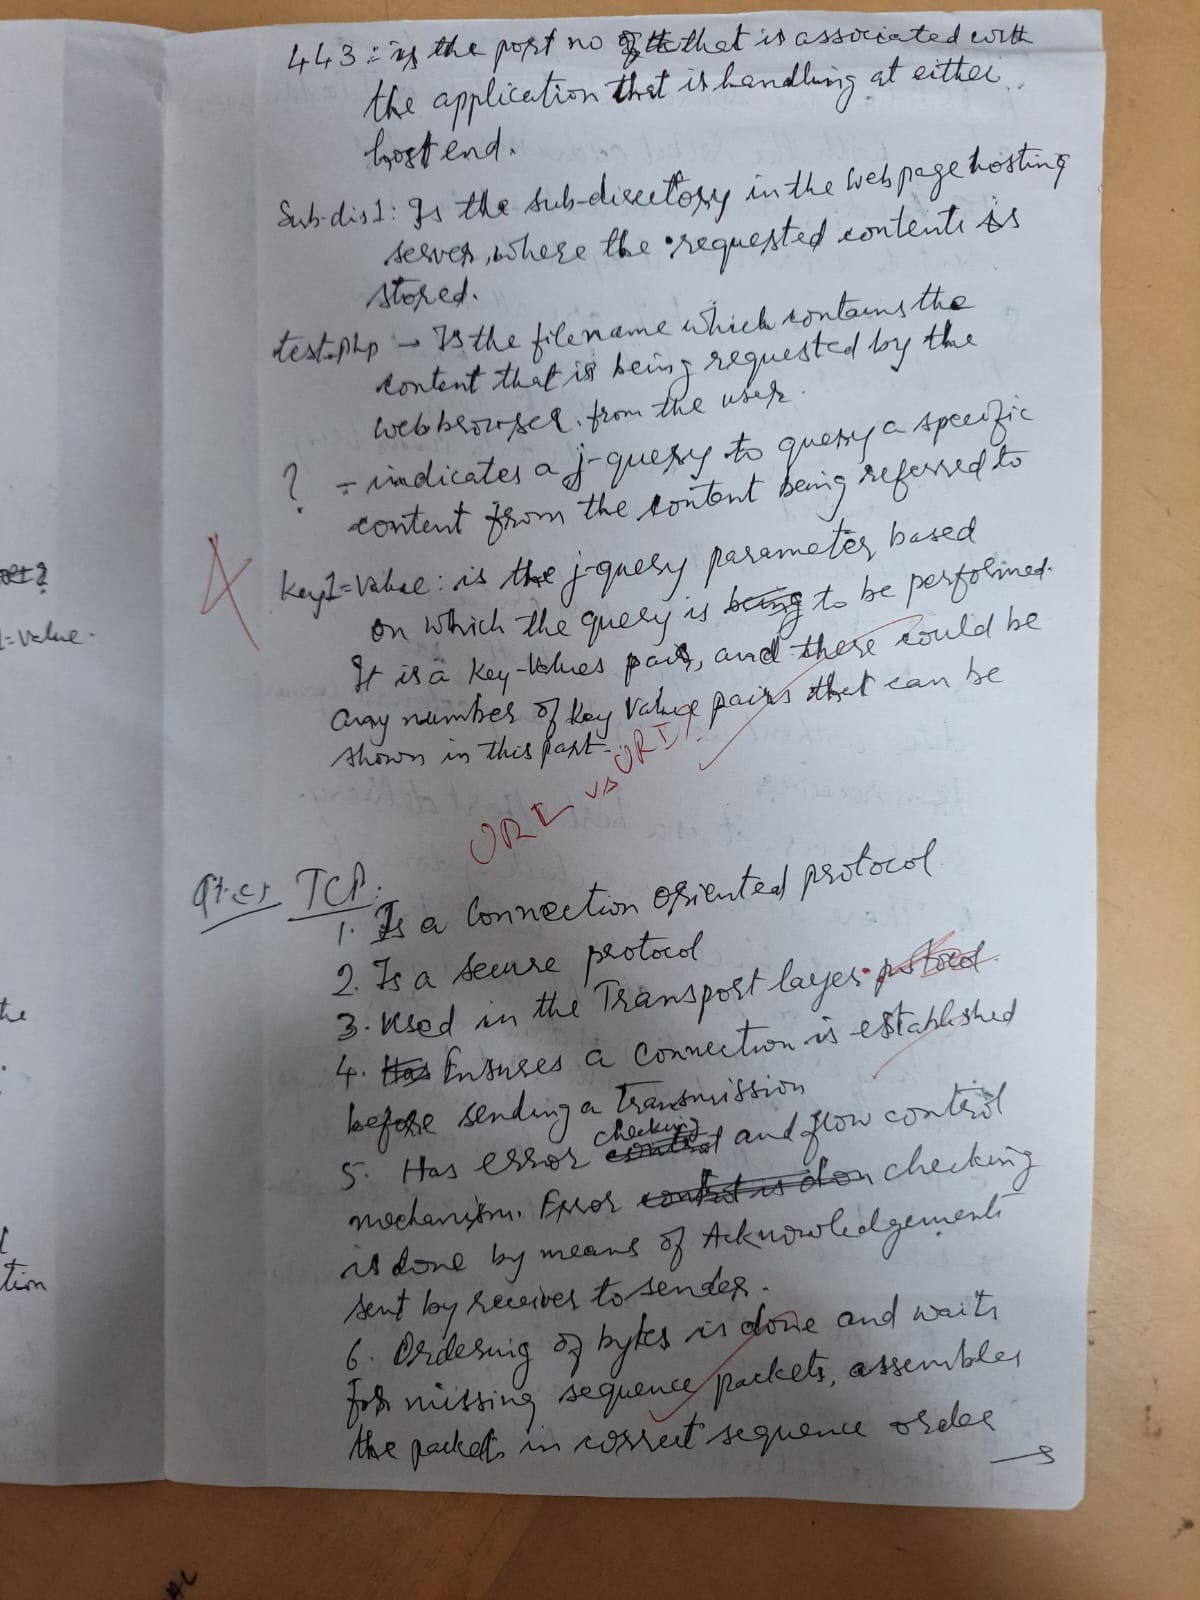 443 :- is the port no that is associated with
the application that is handling at either
host end.
Sub-dir1: Is the sub-directory in the web page hosting
server, where the requested contents is
stored.
test.php → Is the filename which contains the
content that is being requested by the
web browser. from the user.
? - indicates a j-query to query a specific
content from the content being referred to
4
key1=value : is the j-query parameter based
on which the query is being to be performed.
It is a key-values pair, and there could be
any number of key value pairs that can be
shown in this part.
URL vs URI?
TCP:
1. Is a Connection Oriented protocol
2. Is a secure protocol
3. Used in the Transport layer. protocol
4. Has Ensures a connection is established
before sending a transmission
5. Has error checking control and flow control
mechanism. Error control is don checking
is done by means of Acknowledgements
sent by receiver to sender.
6. Ordering of bytes is done and waits
for missing sequence packets, assembles
the packets in correct sequence order
→
1=value.
the
tion